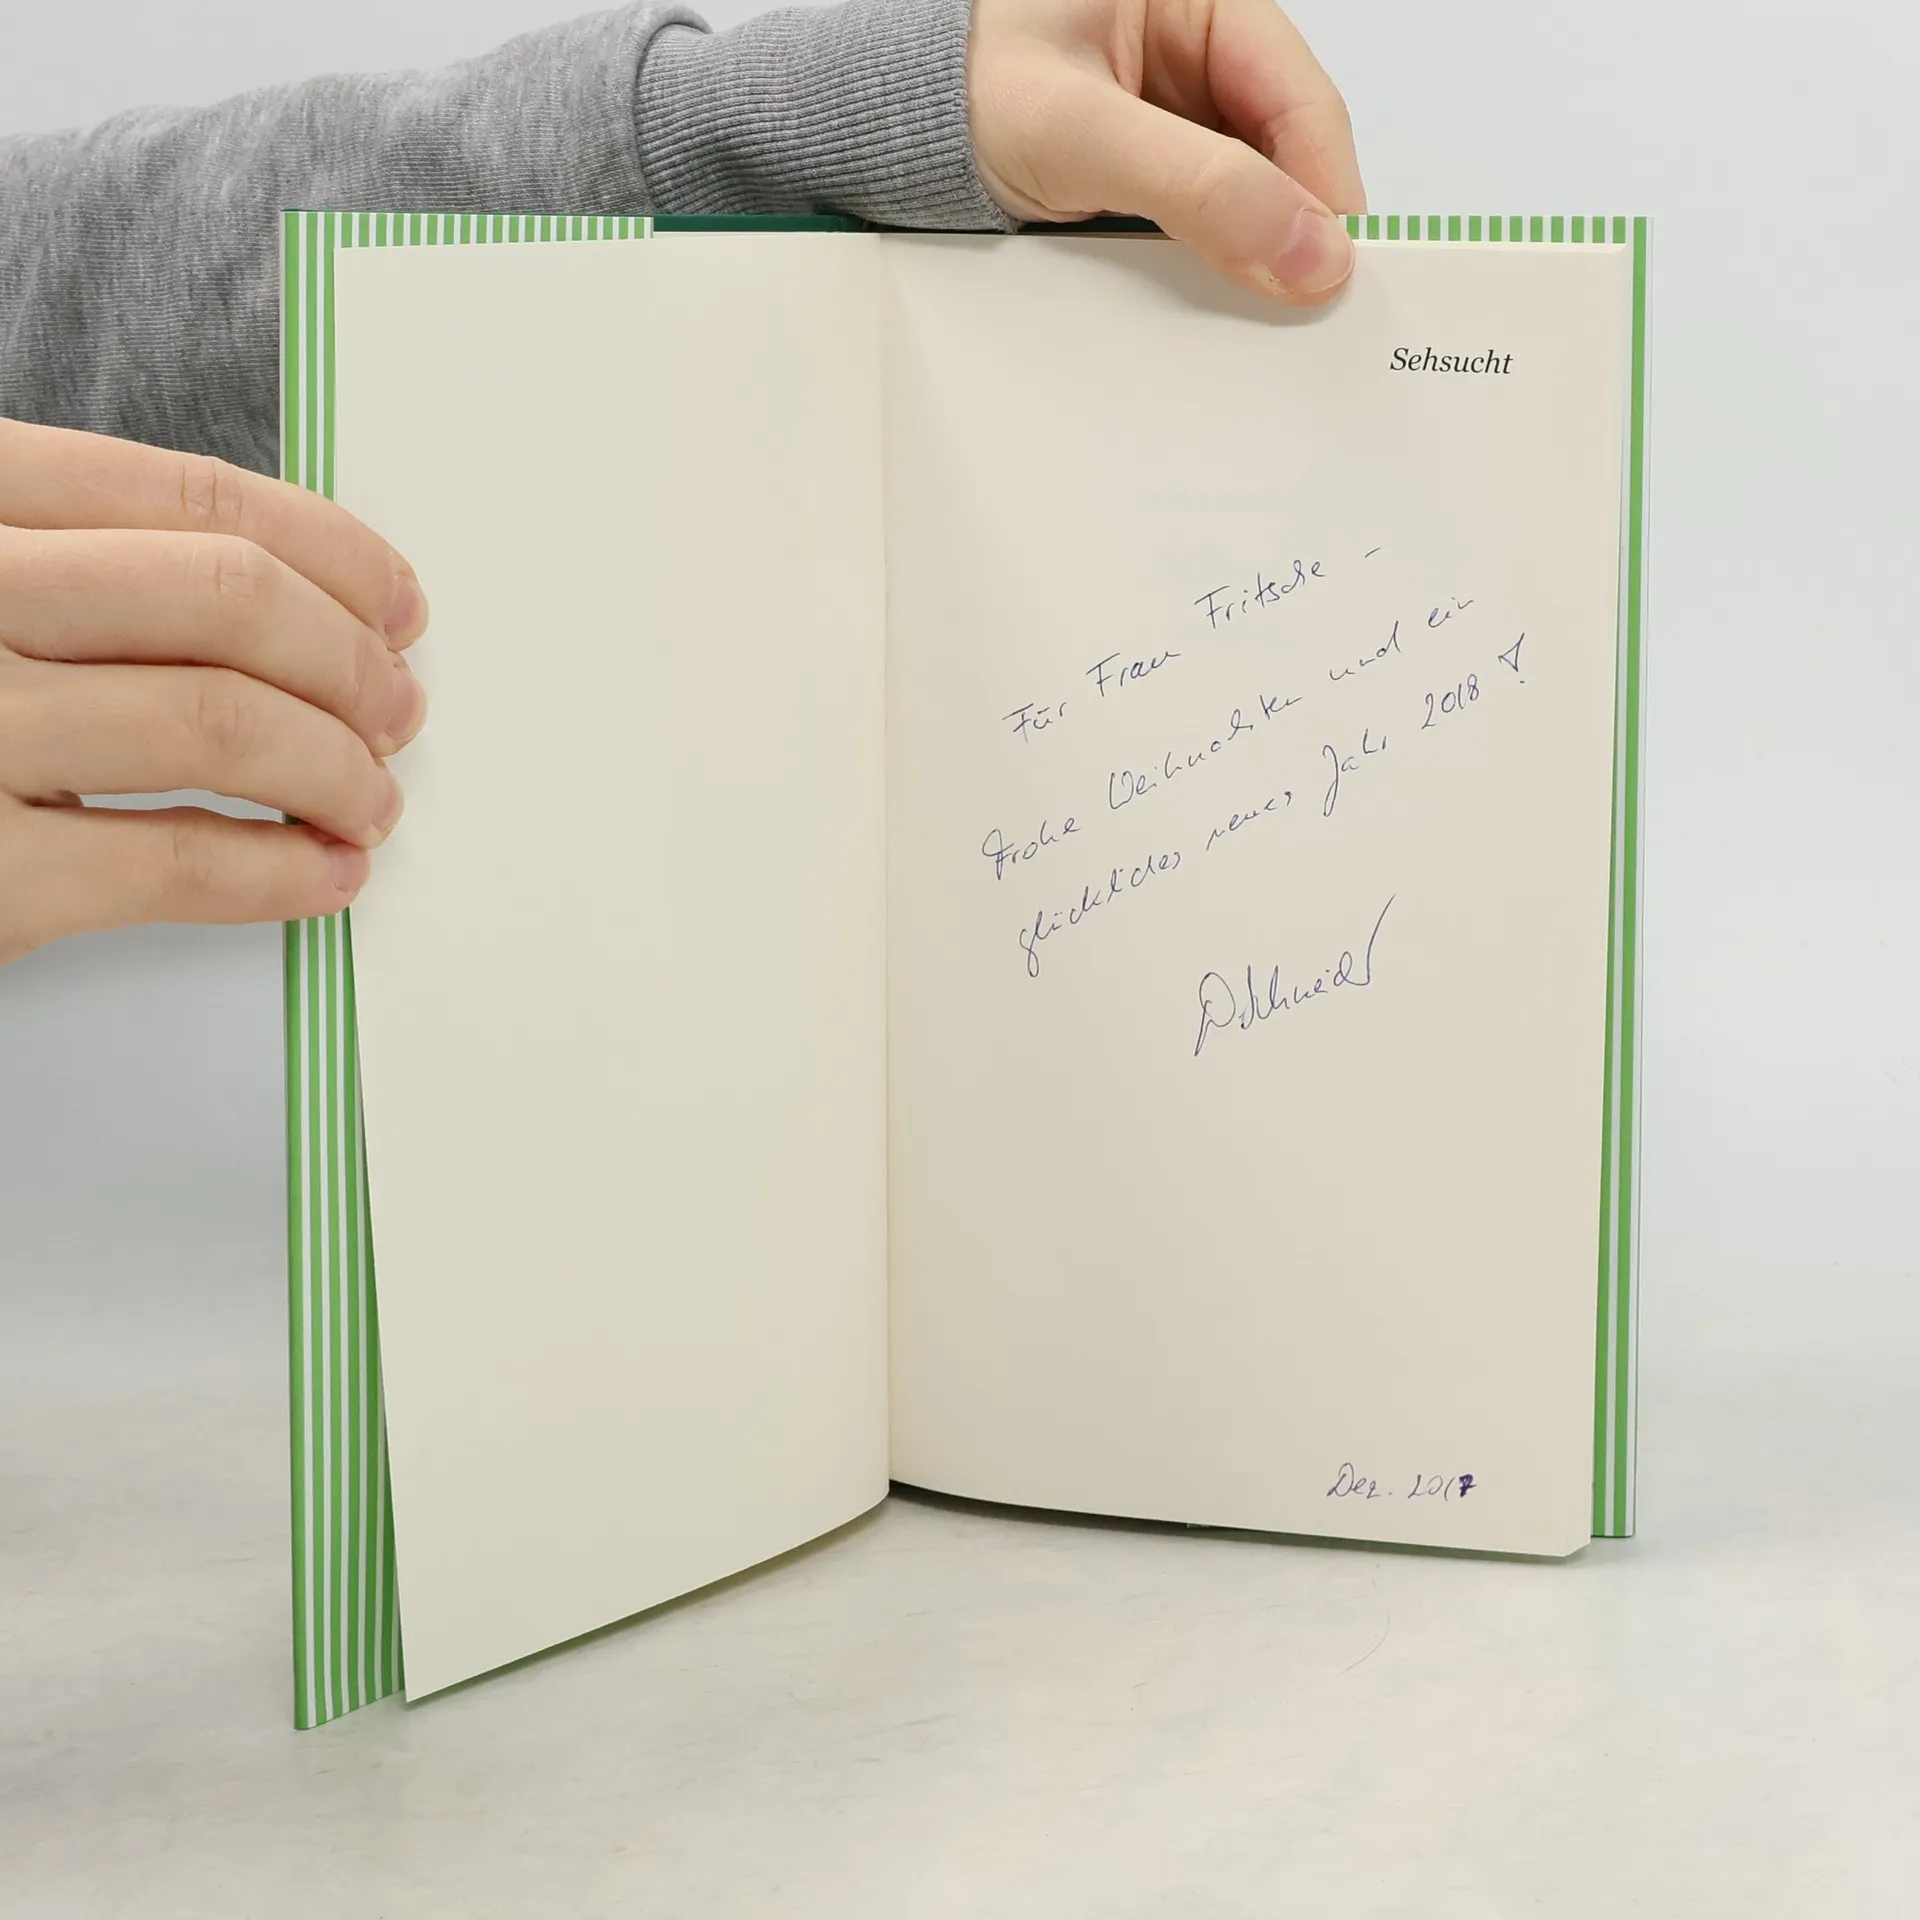 Sehsucht
Für Frau Fritsche –
Frohe Weihnachten und ein
glückliches neues Jahr 2018 !
D. Schneider
Dez. 2017